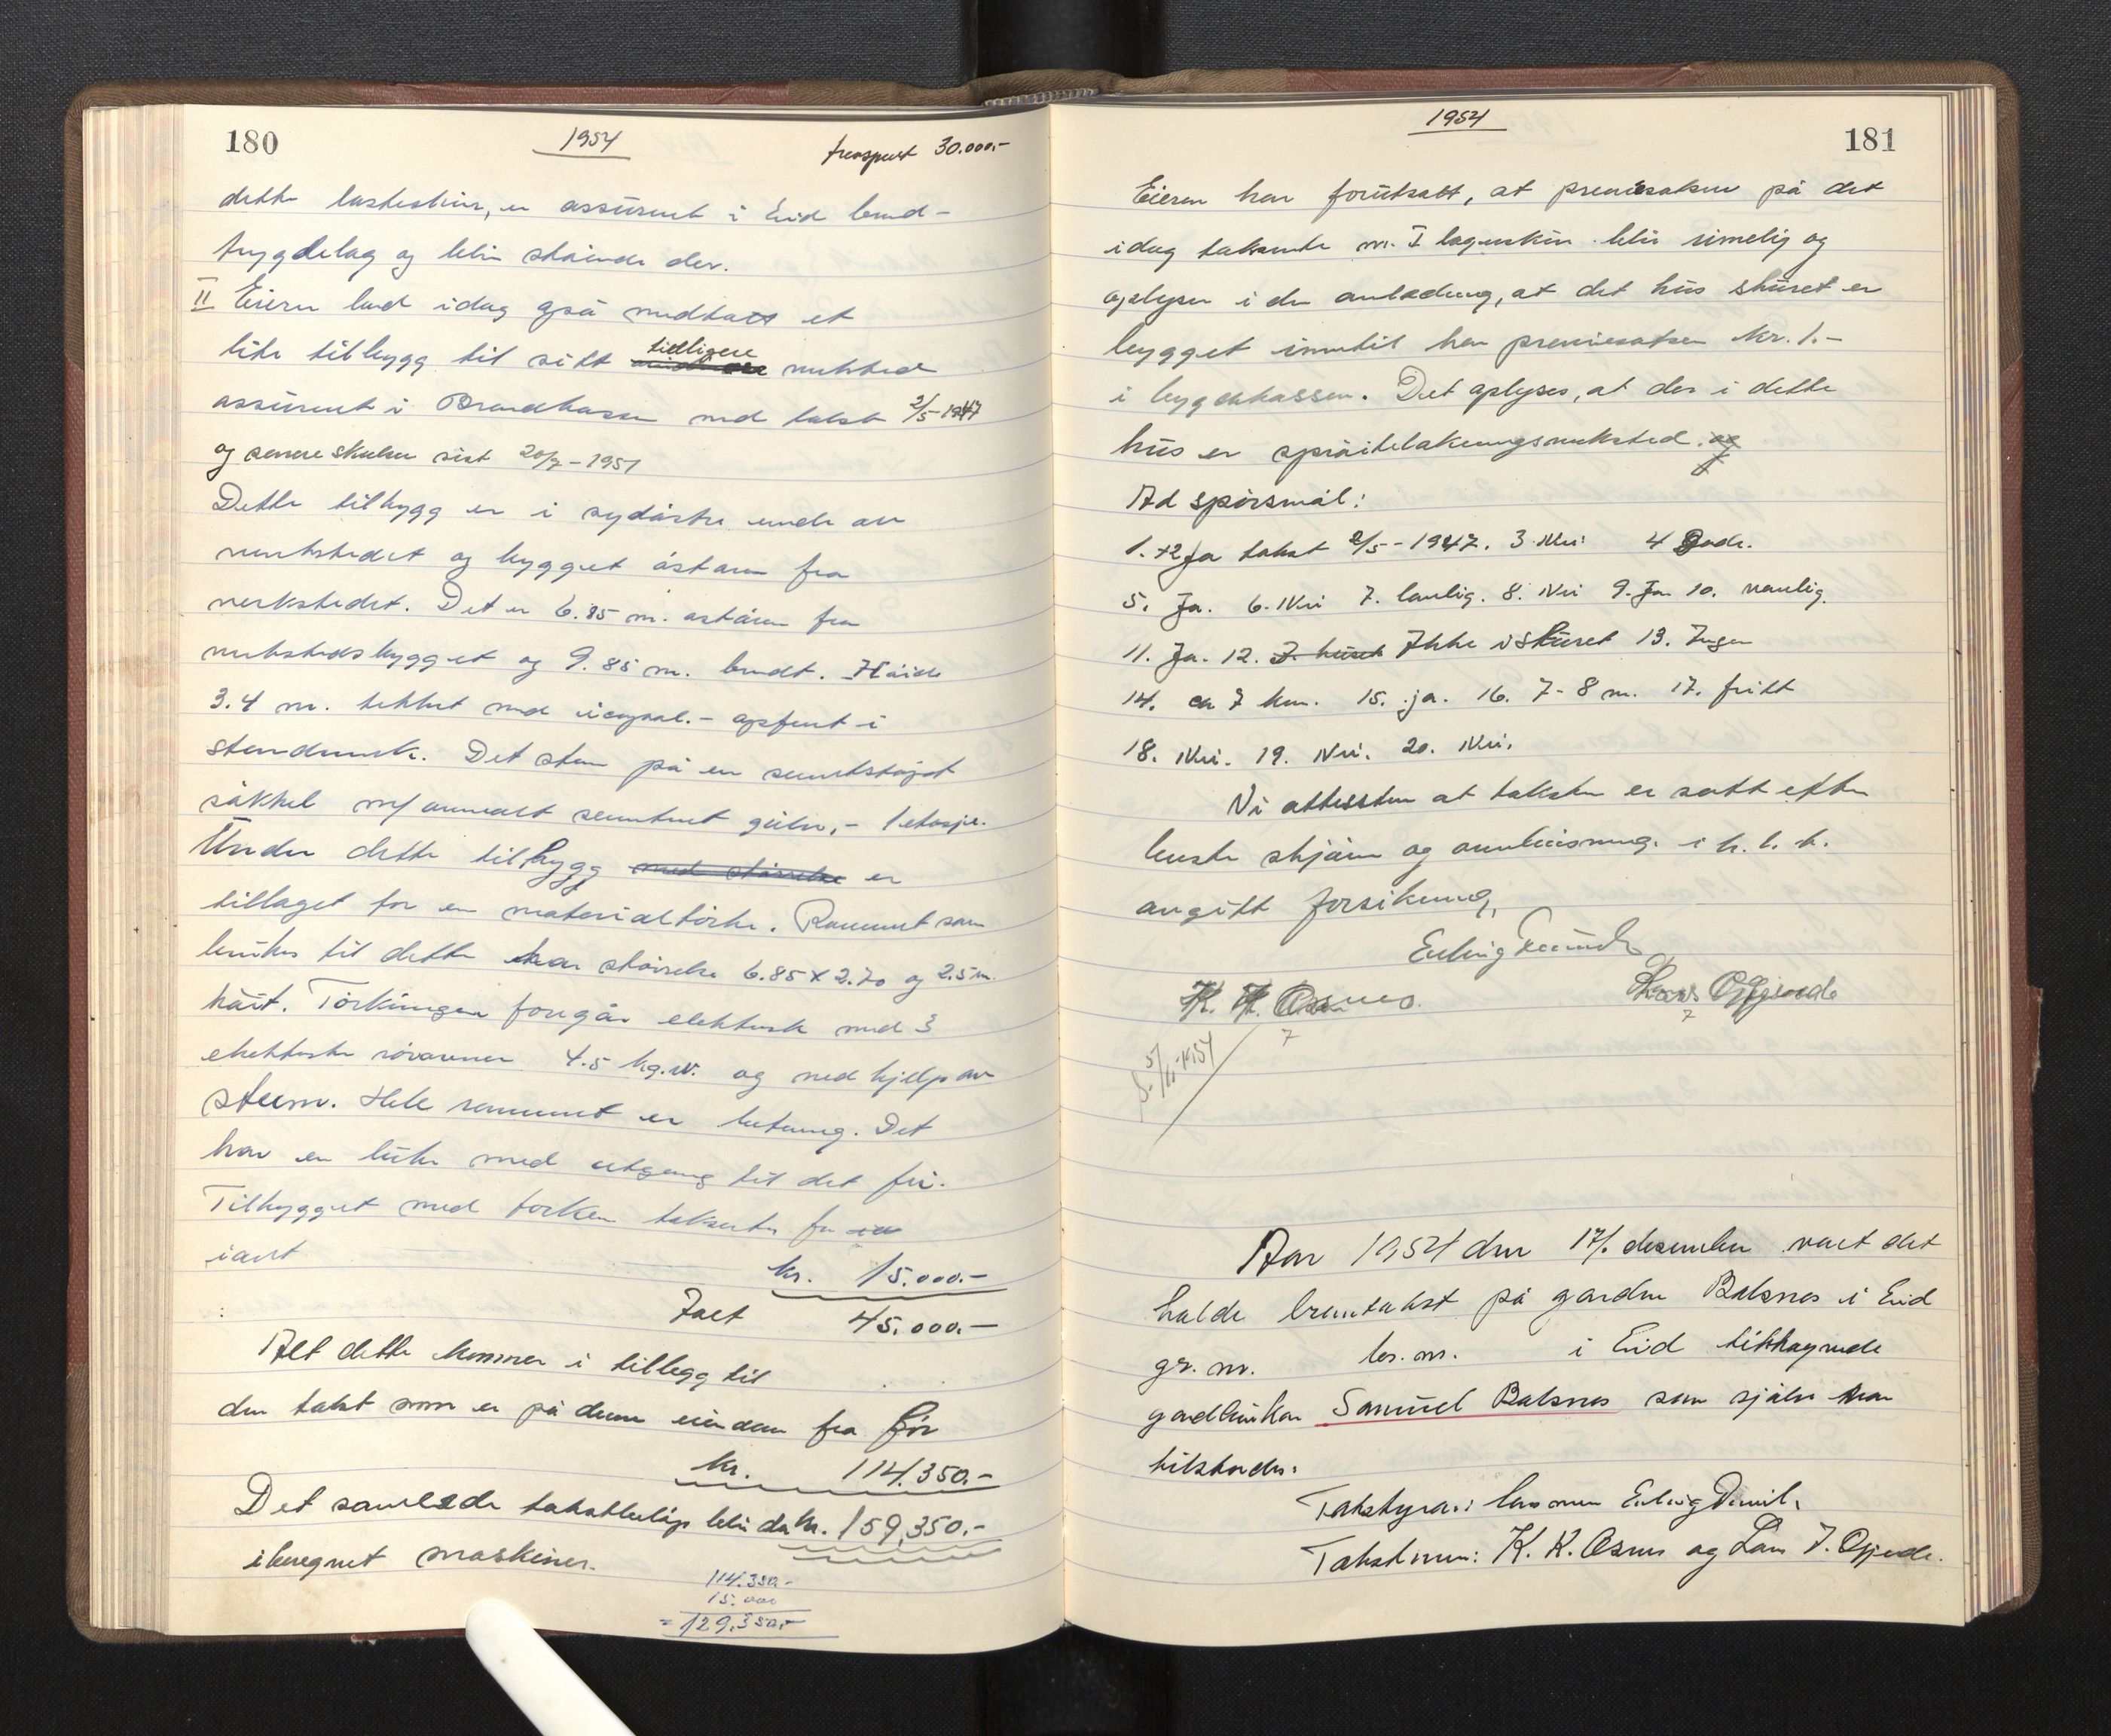 180
1954
transport 30.000.-
dette lastestein, er assurert i Eid brand-
trygdelag og blir stående der.
II Eieren lard idag også medtatt et
lite tilbygg til sitt tidligere verksted
assurert i Brandkassen med takst 2/5-1947
og senere skulen sist 20/7-1951
Dette tilbygg er i sydøstre ende av
verkstedet og bygget østover fra
verkstedet. Det er 6.85 m. østover fra
verkstedsbygget og 9.85 m. bredt. Høide
3.4 m. tekket med oppført i
stendverk. Det står på en sementstøpt
såkkel m/ annealt sementert gulv, - 1 etasje.
Under dette tilbygg med størrelse er
tillaget for en materialtørke. Rommet som
brukes til dette har størrelse 6.85 x 2.70 og 2.5 m.
høit. Tørkingen foregår elektrisk med 3
elektriske rørovner 4.5 kg.w. og med hjelp av
steem. Hele rommet er betong. Det
har en luke med utgang til det fri.
Tilbygget med tørken takseres for
iart
kr. 15.000.-
Ialt 45.000.-
Alt dette kommer i tillegg til
den takst som er på denne eiendom fra før
kr. 114.350.-
Det samlede takstbeløp blir da kr. 159,350.-
iberegnet maskiner.
114.350.-
15.000
= 129.350.-
1954
181
Eieren har forutsatt, at premiesatsen på det
idag takserte nr. I lagerskur blir rimelig og
oplyser i den anledning, at det hus skuret er
bygget inntil har premiesatsen kr. 1.-
i bygdekassen. Det oplyses, at der i dette
hus er sprøitelakeringsverksted. og
Ad spørsmål:
1. +2 Ja takst 2/5-1947. 3. Nei 4 Gode.
5. Ja. 6. Nei 7. lovlig. 8. Nei 9. Ja 10. vanlig.
11. Ja. 12. I huset Ikke i skuret 13. Ingen
14. ca 7 km. 15. ja. 16. 7-8 m. 17. fritt
18. Nei. 19. Nei. 20. Nei.
Vi attesterer at taksten er satt efter
beste skjønn og overbevisning i h. t. h.
avgitt forsikring,
Erling
K. K. Osnes. Lars Ogjerde
5/11-1954
Aar 1954 den 17/. desember vart det
halde branntakst på garden Balsnes i Eid
gr. nr. br. nr. i Eid tilhøyrande
gardbrukar Samuel Balsnes som sjølv var
tilstades.
Takstyrar: lensmann Erling
Takstmenn: K. K. Osnes og Lars J. Ogjerde.